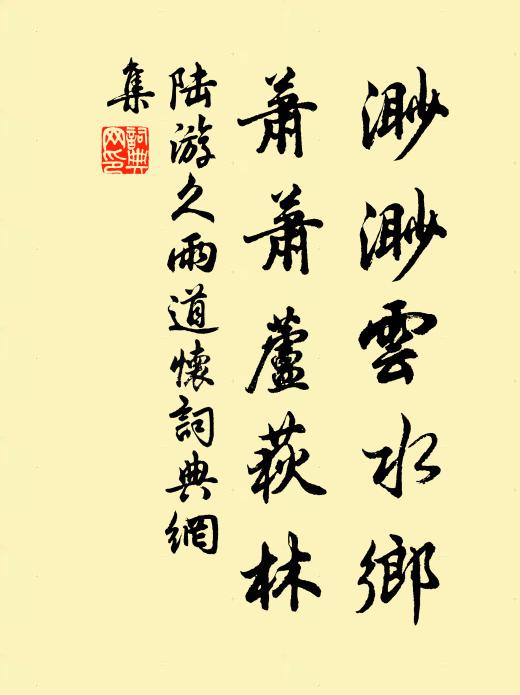 渺渺雲水鄉
蕭蕭蘆荻林
陆游久雨道懷詞典網
集
詞典網印